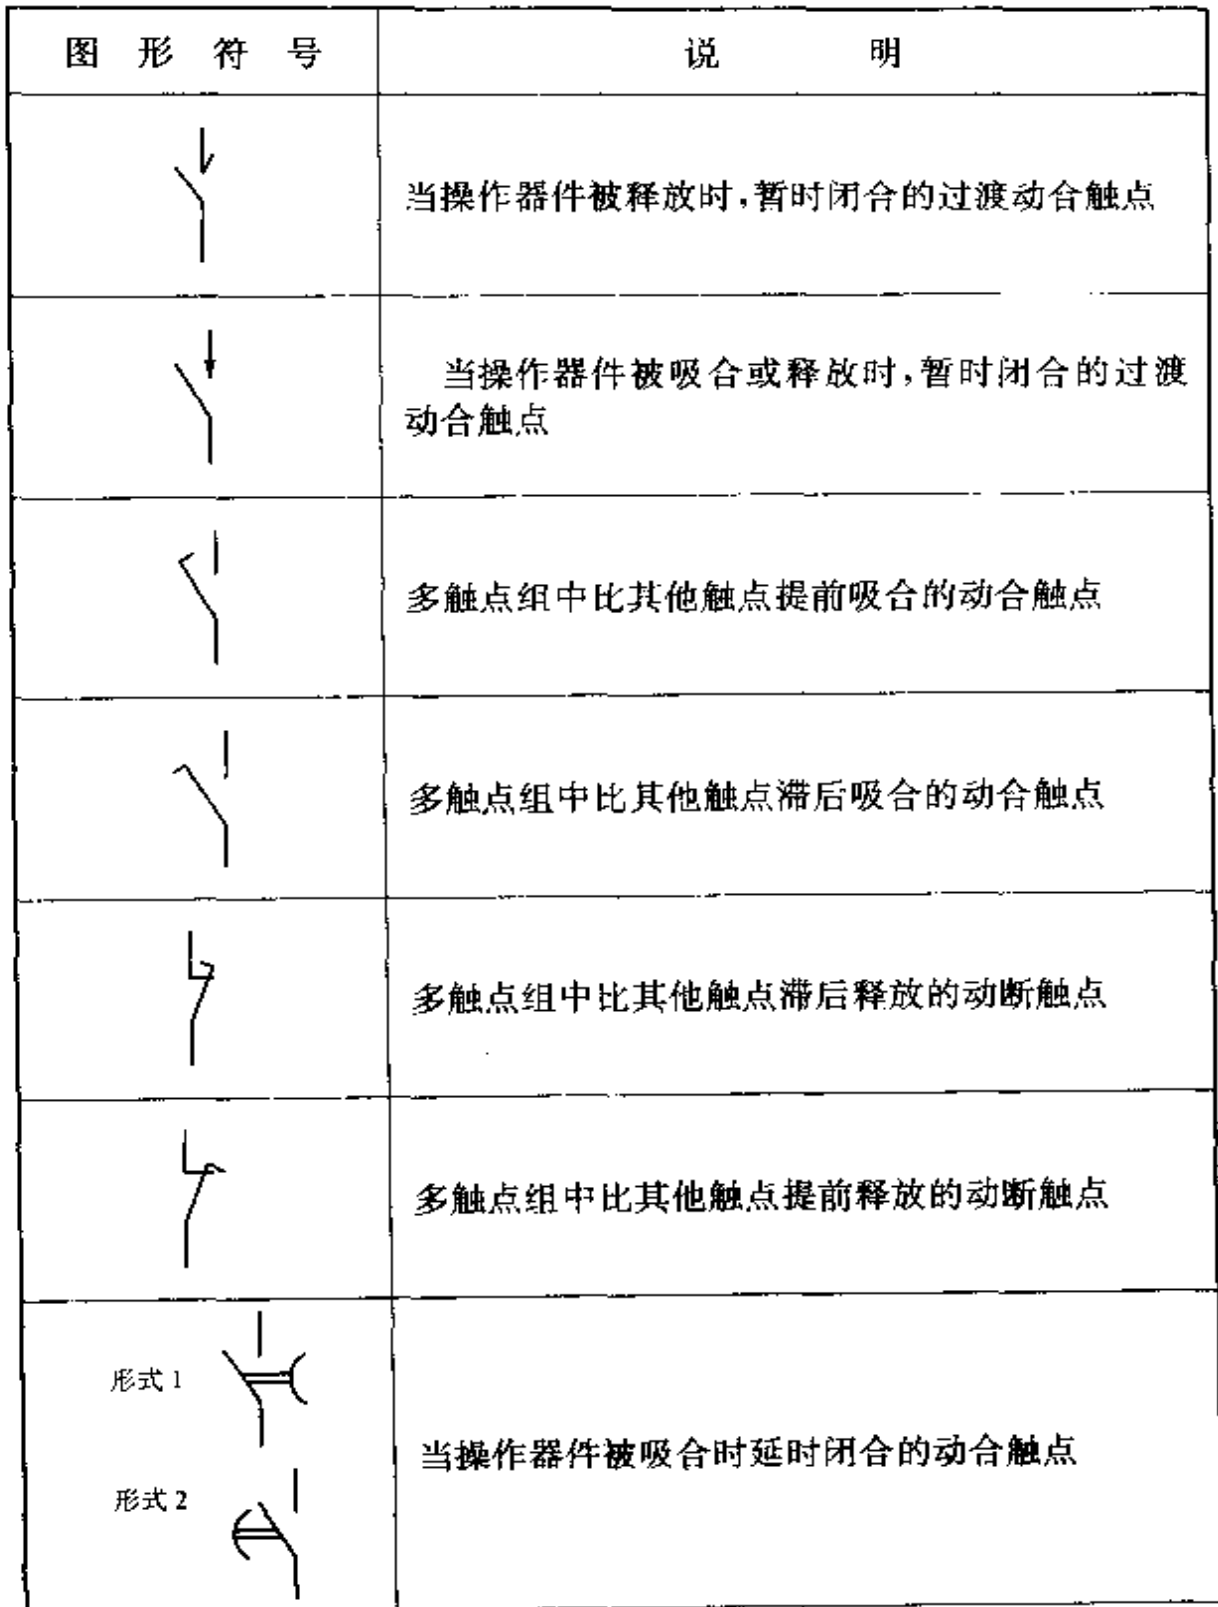 图形符号 说明
当操作器件被释放时,暂时闭合的过渡动合触点
当操作器件被吸合或释放时,暂时闭合的过渡
动合触点
多触点组中比其他触点提前吸合的动合触点
多触点组中比其他触点滞后吸合的动合触点
多触点组中比其他触点滞后释放的动断触点
多触点组中比其他触点提前释放的动断触点
形式1
当操作器件被吸合时延时闭合的动合触点
形式2